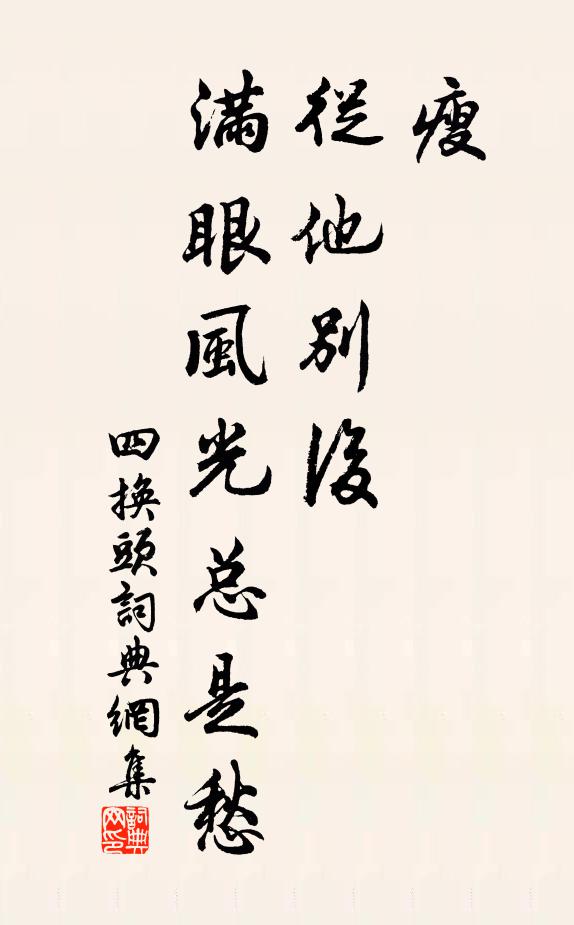 瘦
從他別後
滿眼風光总是愁
四換頭詞典網集
詞典
网印